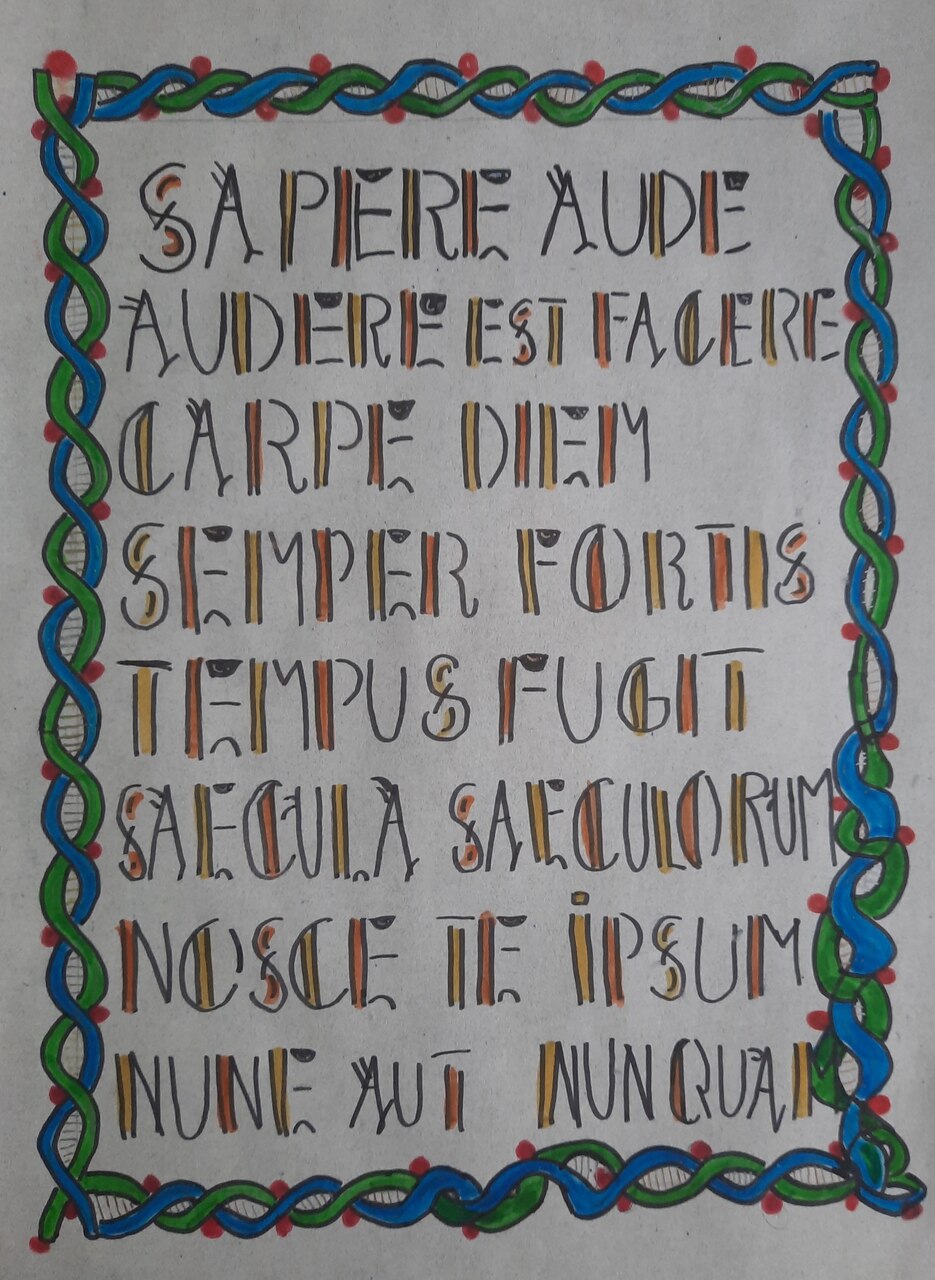 SAPERE AUDE
AUDERE EST FACERE
CARPE DIEM
SEMPER FORTIS
TEMPUS FUGIT
SAECULA SAECULORUM
NOSCE TE IPSUM
NUNE AUT NUNQUAM